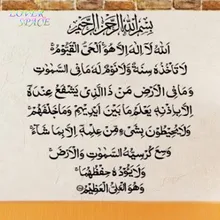 LOVER
SPACE
بِسْمِ اللَّهِ الرَّحْمَٰنِ الرَّحِيمِ
اللَّهُ لَا إِلَٰهَ إِلَّا هُوَ الْحَيُّ الْقَيُّومُ
لَا تَأْخُذُهُ سِنَةٌ وَلَا نَوْمٌ لَهُ مَا فِي السَّمَٰوَٰتِ
وَمَا فِي الْأَرْضِ مَنْ ذَا الَّذِي يَشْفَعُ عِنْدَهُ
إِلَّا بِإِذْنِهِ يَعْلَمُ مَا بَيْنَ أَيْدِيهِمْ وَمَا خَلْفَهُمْ
وَلَا يُحِيطُونَ بِشَيْءٍ مِنْ عِلْمِهِ إِلَّا بِمَا شَاءَ
وَسِعَ كُرْسِيُّهُ السَّمَٰوَٰتِ وَالْأَرْضَ
وَلَا يَئُودُهُ حِفْظُهُمَا
وَهُوَ الْعَلِيُّ الْعَظِيمُ